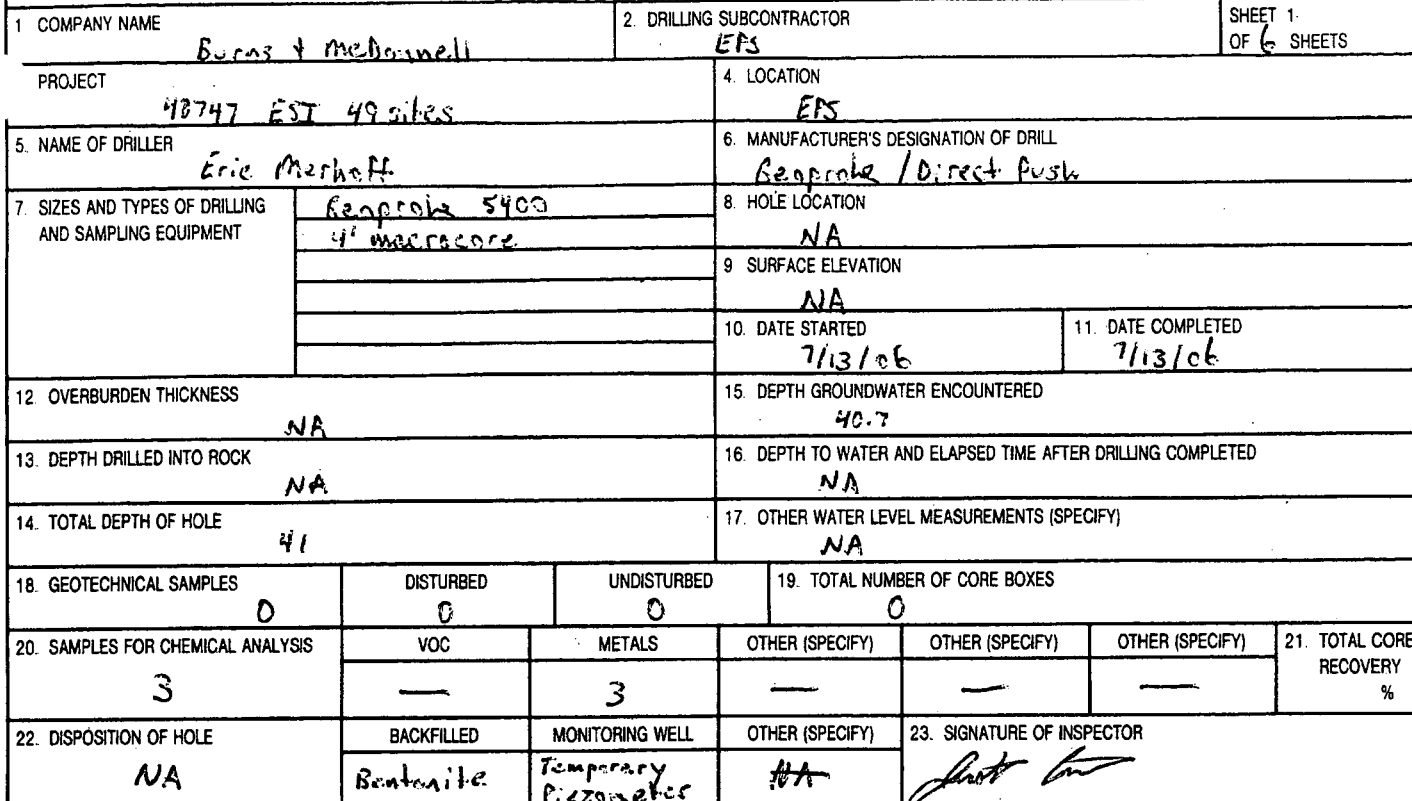 1 COMPANY NAME
Burns & McDonnell
2. DRILLING SUBCONTRACTOR
EPS
SHEET 1
OF 6 SHEETS
PROJECT
48747 ESI 49 sites
4. LOCATION
EPS
5. NAME OF DRILLER
Eric Merhoff
6. MANUFACTURER'S DESIGNATION OF DRILL
Geoprobe / Direct Push
7. SIZES AND TYPES OF DRILLING
AND SAMPLING EQUIPMENT
Geoprobe 5400
4' macrocore
8. HOLE LOCATION
NA
9 SURFACE ELEVATION
NA
10. DATE STARTED
7/13/06
11. DATE COMPLETED
7/13/06
12. OVERBURDEN THICKNESS
NA
15. DEPTH GROUNDWATER ENCOUNTERED
40.7
13. DEPTH DRILLED INTO ROCK
NA
16. DEPTH TO WATER AND ELAPSED TIME AFTER DRILLING COMPLETED
NA
14. TOTAL DEPTH OF HOLE
41
17. OTHER WATER LEVEL MEASUREMENTS (SPECIFY)
NA
18. GEOTECHNICAL SAMPLES
0
DISTURBED
0
UNDISTURBED
0
19. TOTAL NUMBER OF CORE BOXES
0
20. SAMPLES FOR CHEMICAL ANALYSIS
3
VOC
—
METALS
3
OTHER (SPECIFY)
—
OTHER (SPECIFY)
—
OTHER (SPECIFY)
—
21. TOTAL CORE
RECOVERY
%
22. DISPOSITION OF HOLE
NA
BACKFILLED
Bentonite
MONITORING WELL
Temporary
Piezometer
OTHER (SPECIFY)
NA
23. SIGNATURE OF INSPECTOR